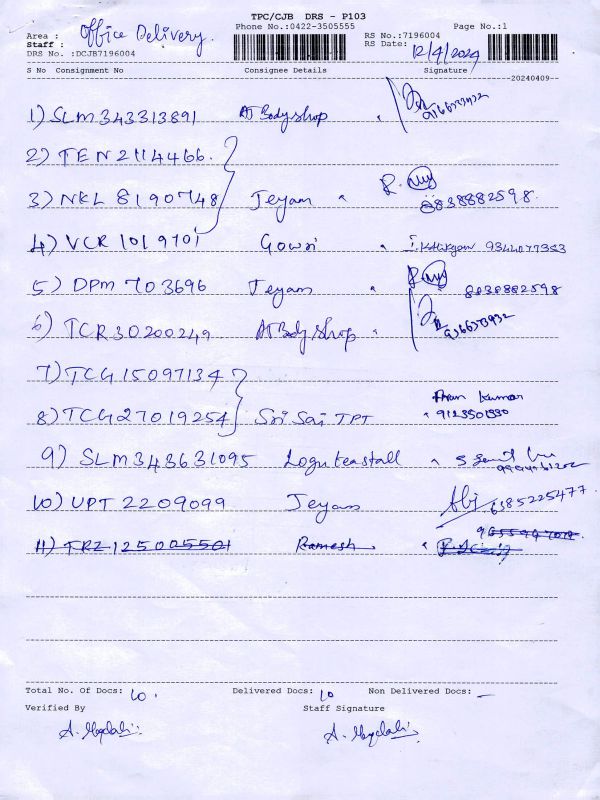 TPC/CJB DRS - P103
Phone No.:0422-3505555 Page No.:1
Area : Office Delivery.
Staff :
RS No.:7196004
RS Date: 12/4/2024
DRS No. :DCJB7196004
S No Consignment No Consignee Details Signature
20240409
1) SLM 343313891 AJ Body shop "
2) TEN 2114466.
3) NKL 8190748 Jeyam " 8838882598
4) VCR 1019701 Gowri " 9344077353
5) DPM 703696 Jeyam " 8838882598
6) TCR30200249 AJ Body shop "
7) TCG 15097134
8) TCG 27019254 Sri Sai TPT Arun Kumar
" 9123501530
9) SLM 343631095 Logu teastall "
10) UPT 2209099 Jeyam Abi 6385225477
11) TRZ 125005501 Ramesh "
Total No. Of Docs: 10. Delivered Docs: 10 Non Delivered Docs: -
Verified By Staff Signature